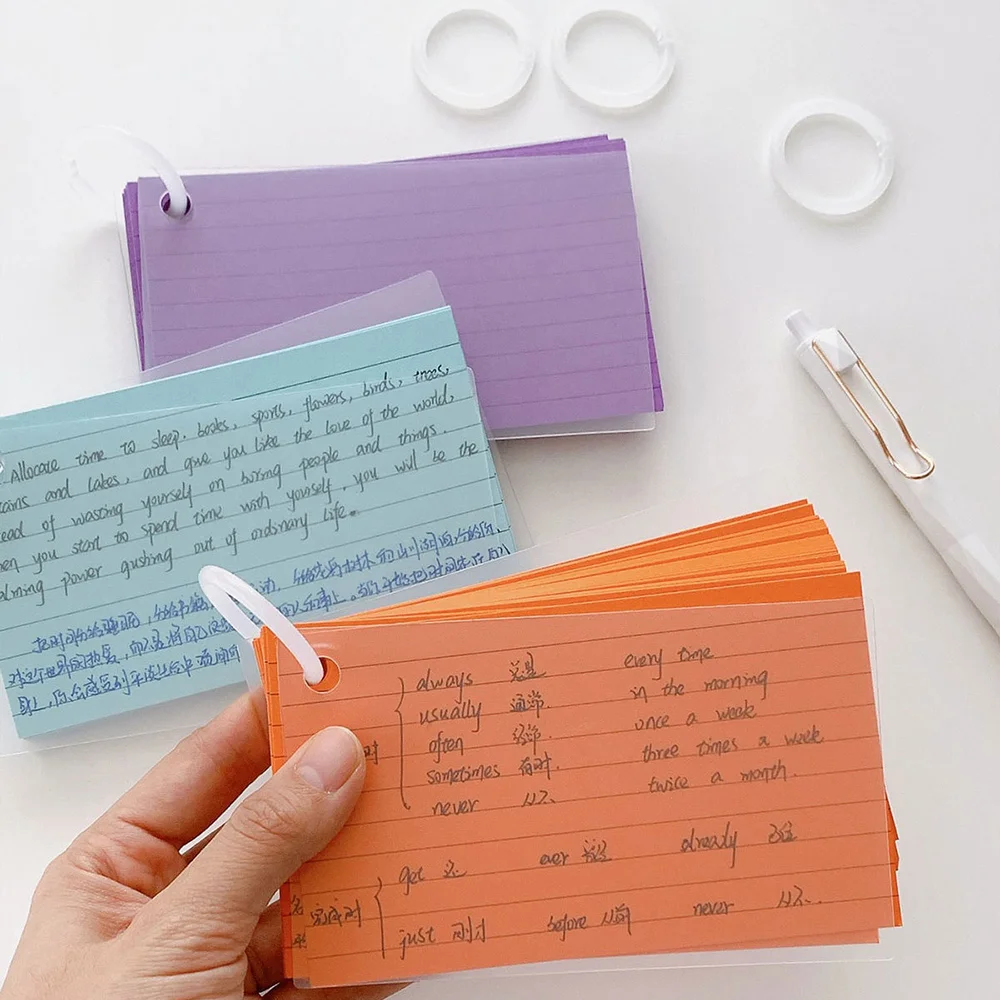 Allocate time to sleep. books, sports, flowers, birds, trees,
tains and lakes, and give you like the love of the world,
ead of wasting yourself on boring people and things.
hen you start to spend time with yourself, you will be the
alming power gushing out of ordinary life。
把时间分给睡眠,分给书籍
对这个世界的热爱,而不是将自己浪费
身上,你会感受到平淡生活中
always 总是 every time
usually 通常 in the morning
often 经常 once a week
时 sometimes 有时 three times a week
never 从不 twice a month
get ever 曾经 already 已经
完成时
just 刚才 before 以前 never 从不